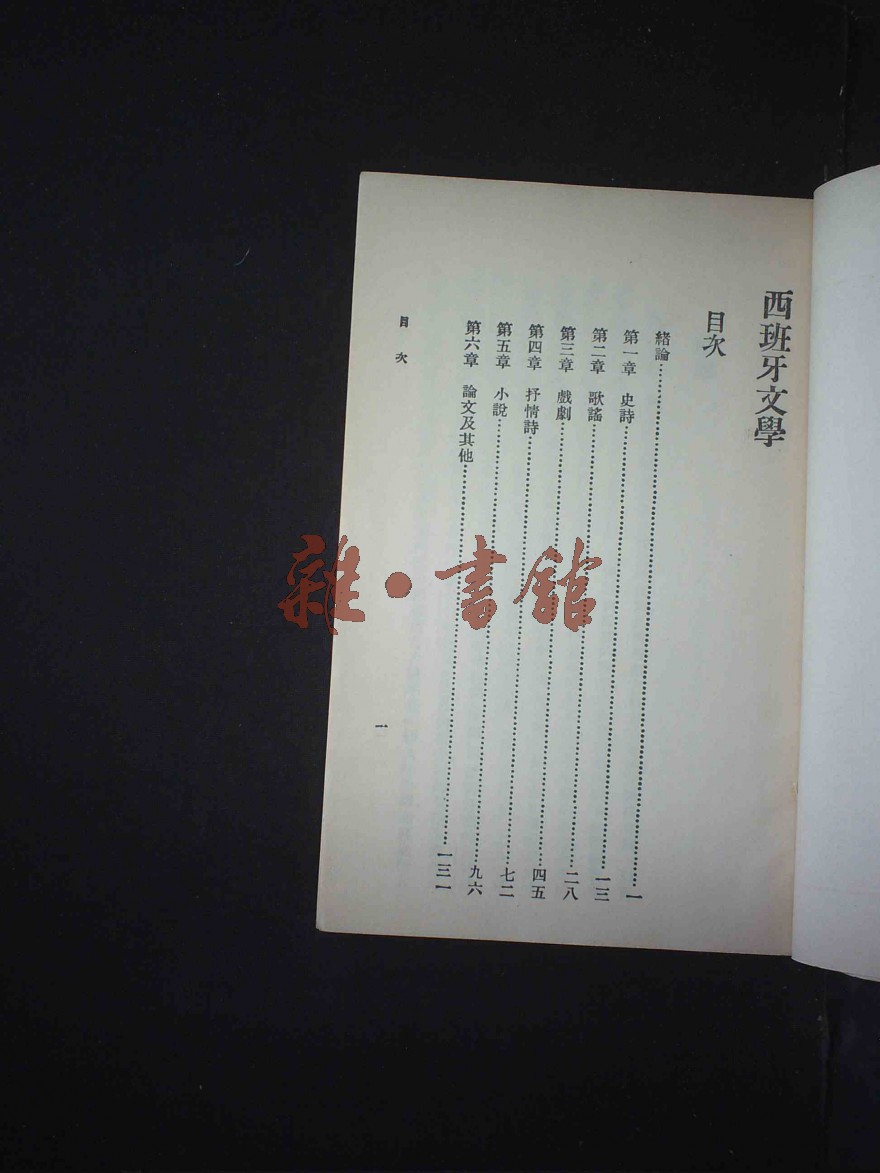 西班牙文學
目次
緒論……一
第一章 史詩……一三
第二章 歌謠……二八
第三章 戲劇……四五
第四章 抒情詩……七二
第五章 小說……九六
第六章 論文及其他……一三一
目次 一
雜·書館